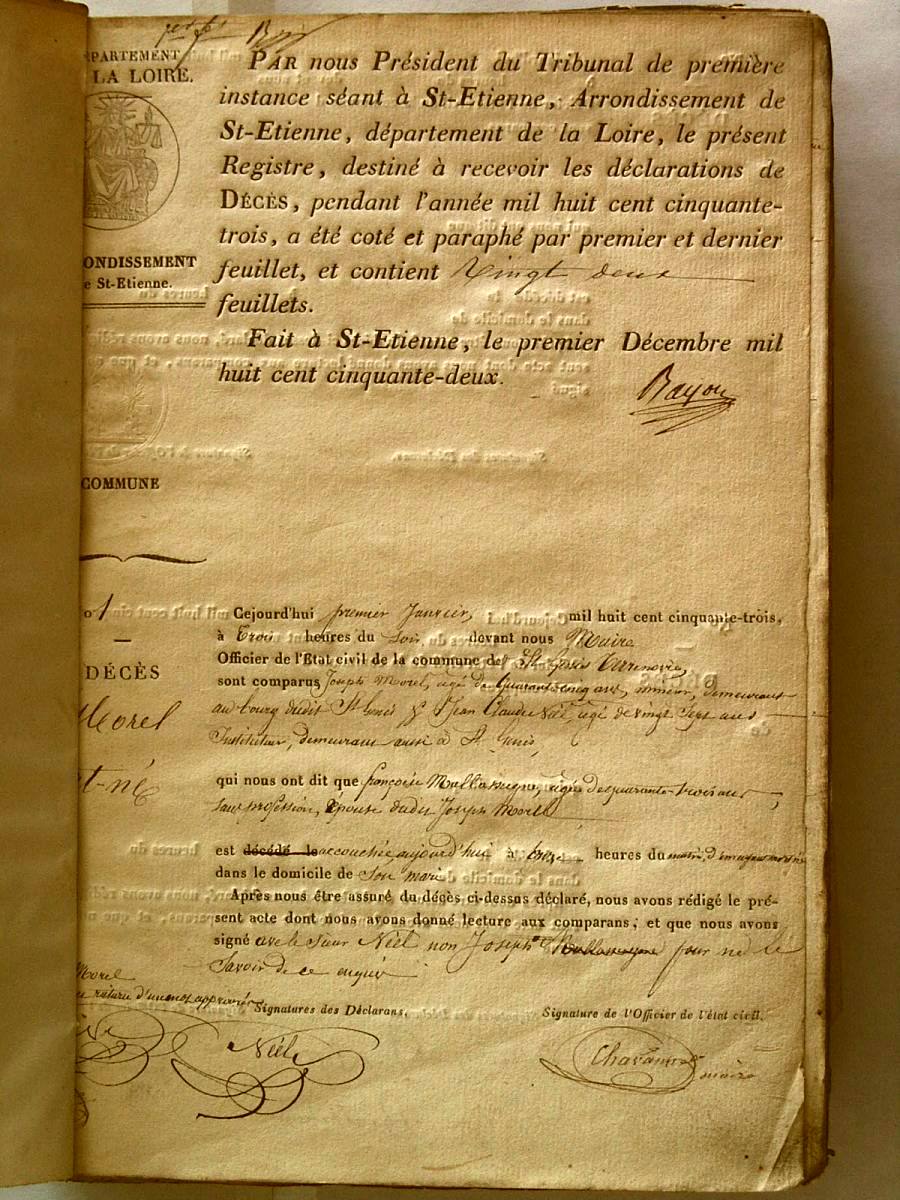 PARTEMENT
LA LOIRE.
PAR nous Président du Tribunal de première
instance séant à St-Etienne, Arrondissement de
St-Etienne, département de la Loire, le présent
Registre, destiné à recevoir les déclarations de
DÉCÈS, pendant l'année mil huit cent cinquante-
trois, a été coté et paraphé par premier et dernier
feuillet, et contient Vingt deux
feuillets.
Fait à St-Etienne, le premier Décembre mil
huit cent cinquante-deux.
Bayon
ONDISSEMENT
e St-Etienne.
COMMUNE
o 1
DÉCÈS
Morel
t-né
Cejourd'hui premier Janvier, mil huit cent cinquante-trois,
à Trois heures du Soir, devant nous Maire
Officier de l'Etat civil de la commune de St Genis Terrenoire,
sont comparus Joseph Morel, agé de quarante cinq ans, mineur, demeurant
au bourg dudit St Genis & Jean Claude Niel, agé de vingt sept ans
Instituteur, demeurant aussi à St Genis,
qui nous ont dit que françoise agée de quarante-trois ans,
sans profession, Epouse dudit Joseph Morel
est décédé le accouchée aujourd'hui à heures du matin, d'un enfant mort né
dans le domicile de Son mari
Après nous être assuré du décès ci-dessus déclaré, nous avons rédigé le pré-
sent acte dont nous avons donné lecture aux comparans, et que nous avons
signé avec le Sieur Niel non Joseph pour ne le
Savoir de ce enquis
Morel
rature d'un mot approuvée
Signatures des Déclarans,
Signature de l'Officier de l'état civil,
Niel
Chavanne
maire